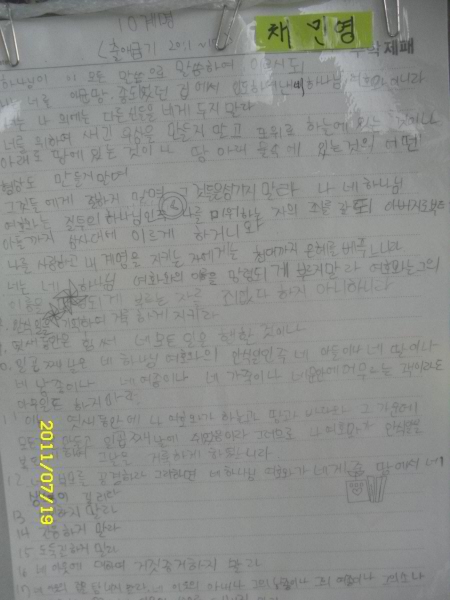 10계명
채민영
(출애굽기 20:1~17
하나님이 이 모든 말씀으로 말씀하여
너를 애굽땅 종 되었던 집에서 인도하여낸 네 하나님 여호와니라
나 외에는 다른 신들을 네게 두지 말라
너를 위하여 새긴 우상을 만들지 말고 또 위로 하늘에 있는 것이나
아래로 땅에 있는 것이나 땅 아래 물속에 있는 것의 어떤
형상도 만들지 말며
그것들에게 절하지 말며 그것들을 섬기지 말라 나 네 하나님
여호와는 질투의 하나님인즉 나를 미워하는 자의 죄를 갚되 아버지로부터
아들까지 삼사대에 이르게 하거니와
나를 사랑하고 내 계명을 지키는 자에게는 천대까지 은혜를 베푸느니라
너는 네 하나님 여호와의 이름을 망령되게 부르지 말라 여호와는 그의
이름을 되게 부르는 자를 죄없다 하지 아니하리라
안식일을 기억하여 거룩하게 지키라
엿새동안은 힘써 네 모든 일을 행할 것이나
일곱째 날은 네 하나님 여호와의 안식일인즉 너나 네 아들이나 네 딸이나
네 남종이나 네 여종이나 네 가축이나 네 문안에 머무는 객이라도
아무일도 하지 말라
11 엿새동안에 나 여호와가 하늘과 땅과 바다와 그 가운데
모든 것을 만들고 일곱째 날에 쉬었음이라 그러므로 나 여호와가 안식일을
복되게 하여 그날을 거룩하게 하였느니라
12 부모를 공경하라 그리하면 네 하나님 여호와가 네게 준 땅에서 네
생명이 길리라
13 하지 말라
14 간음하지 말라
15 도둑질하지 말라
16 네 이웃에 대하여 거짓증거하지 말라
17 네 이웃의 집을 탐내지 말라 네 이웃의 아내나 그의 남종이나 그의 여종이나 그의 소나
2011/07/19